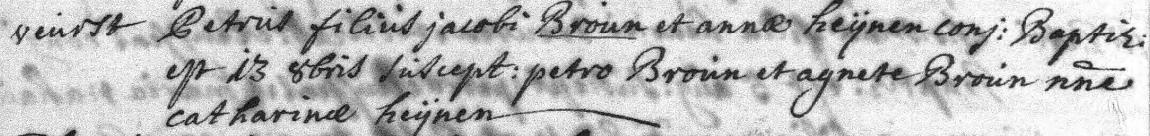 veurst Petrus filius jacobi Broun et annæ heÿnen conj: Baptiz:
est 13 8bris suscept: petro Broun et agnete Broun nñe
catharinæ heÿnen